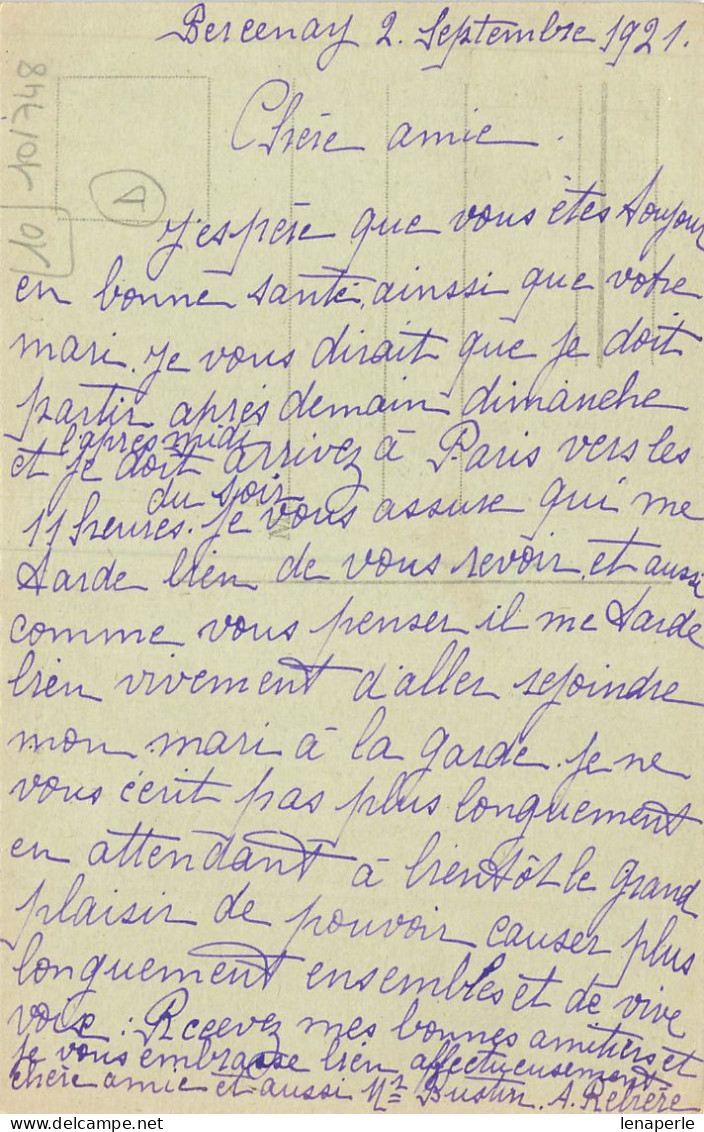 Bercenay 2. Septembre 1921.
10/10/748
A
Chère amie.
J'espère que vous êtes toujour
en bonne santé, ainsi que votre
mari. Je vous dirait que je doit
partir après demain dimanche
l'après midi
et je doit arrivez à Paris vers les
du soir
11 heures. Je vous assure qui me
tarde bien de vous revoir, et aussi
comme vous penser il me tarde
bien vivement d'aller rejoindre
mon mari à la garde. Je ne
vous écrit pas plus longuement
en attendant à bientôt le grand
plaisir de pouvoir causer plus
longuement ensembles et de vive
voix : Recevez mes bonnes amitiers et
je vous embrasse bien affectueusement
chère amie et aussi Mr Bustin. A. Rebière
lenaperle